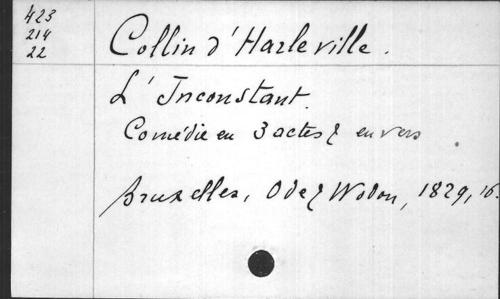 423
214
22
Collin d'Harleville.
L'Inconstant.
Comédie en 3 actes & en vers
Bruxelles, Ode & Wodon, 1829, 16.